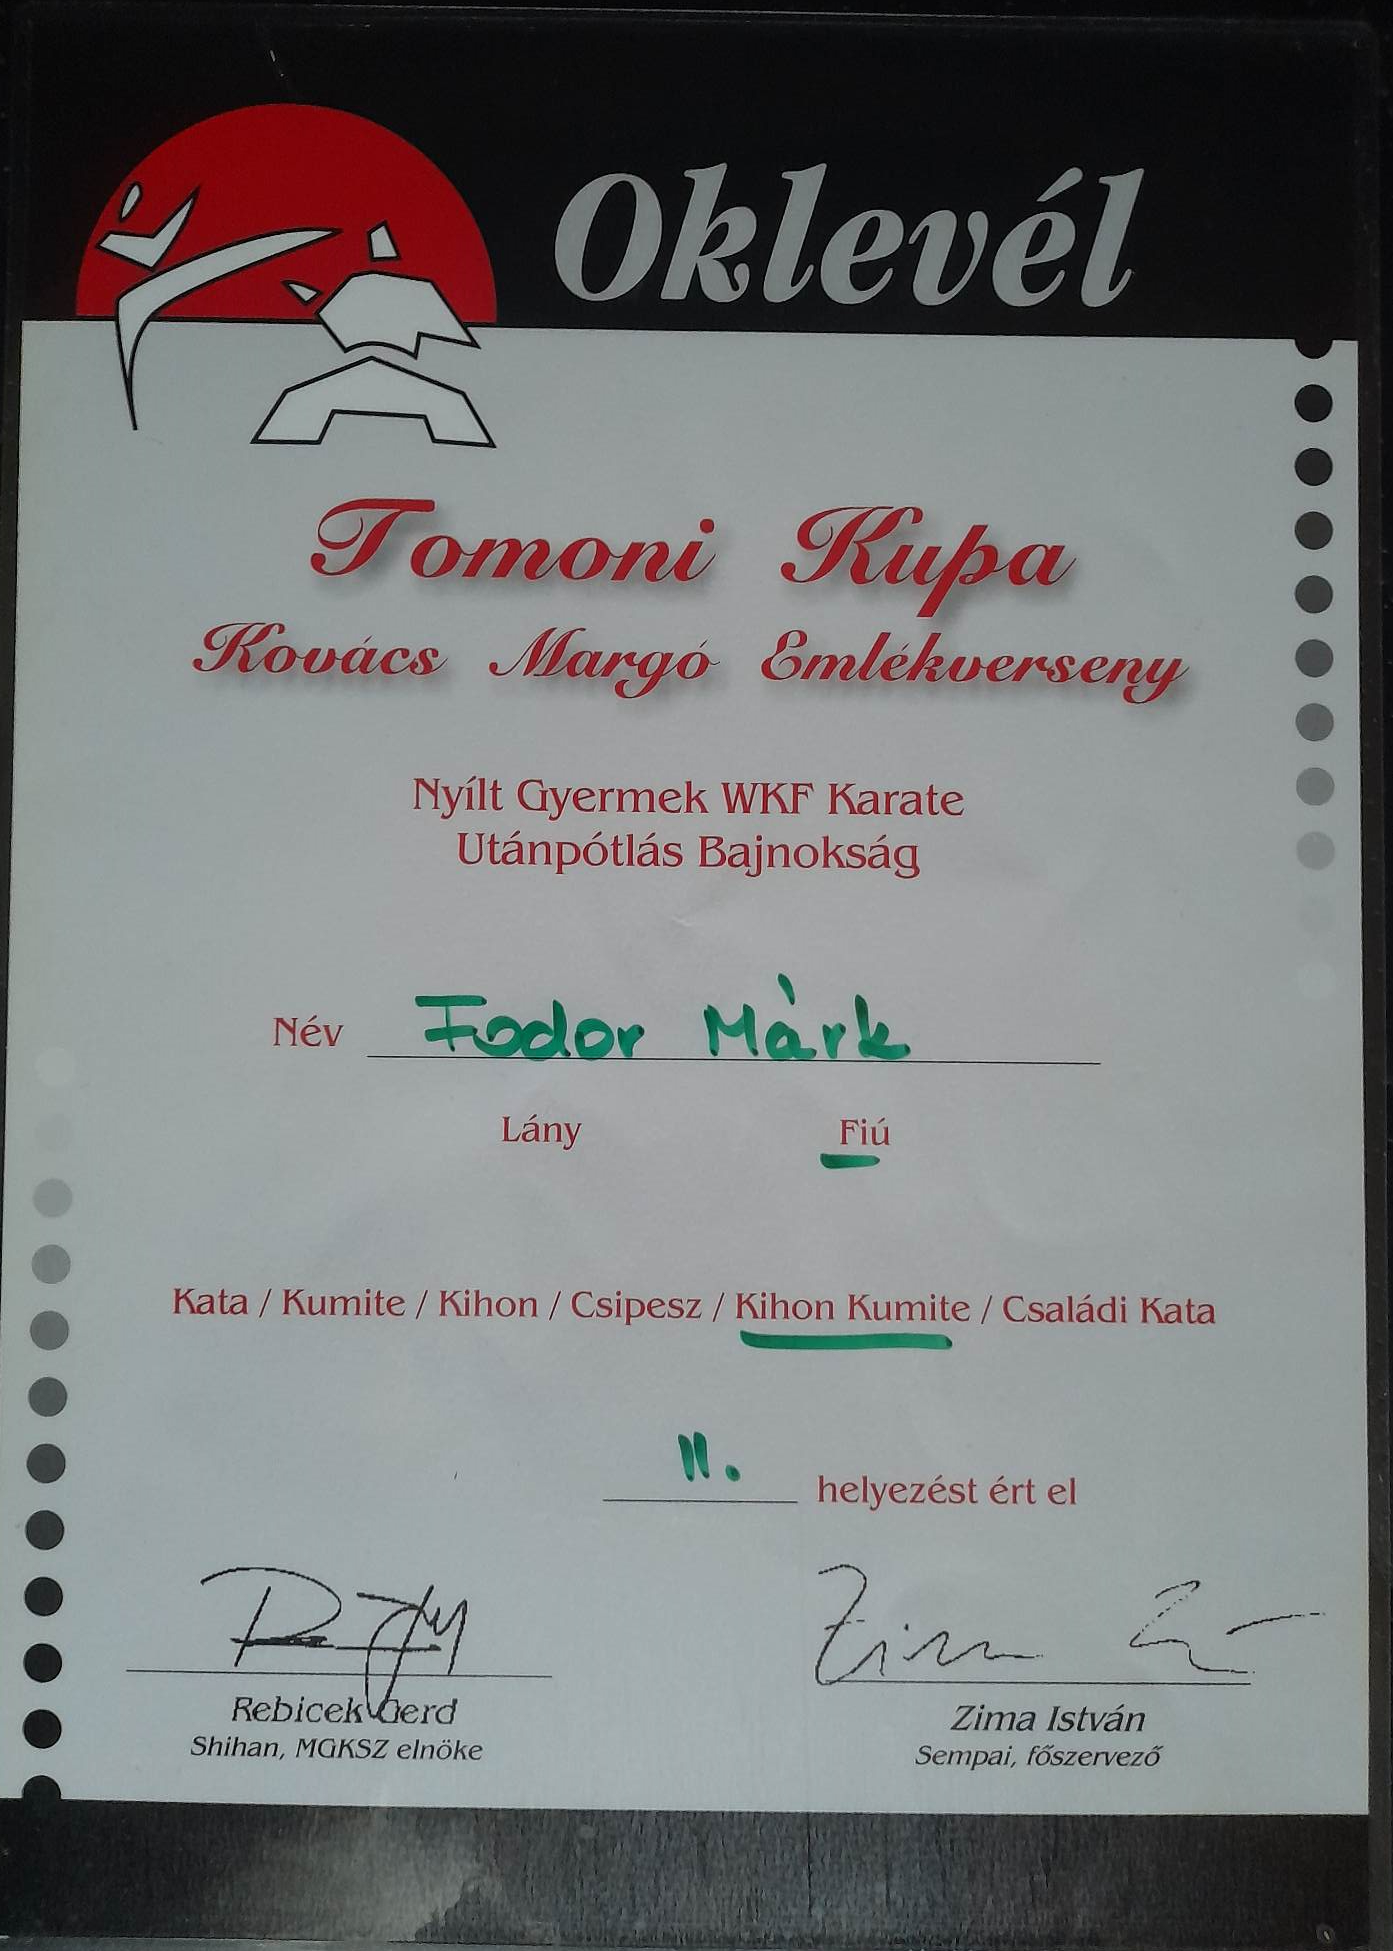 Oklevél
Tomoni Kupa
Kovács Margó Emlékverseny
Nyílt Gyermek WKF Karate
Utánpótlás Bajnokság
Név Fodor Márk
Lány Fiú
Kata / Kumite / Kihon / Csipesz / Kihon Kumite / Családi Kata
II. helyezést ért el
Rebicek Gerd Zima István
Shihan, MGKSZ elnöke Sempai, főszervező